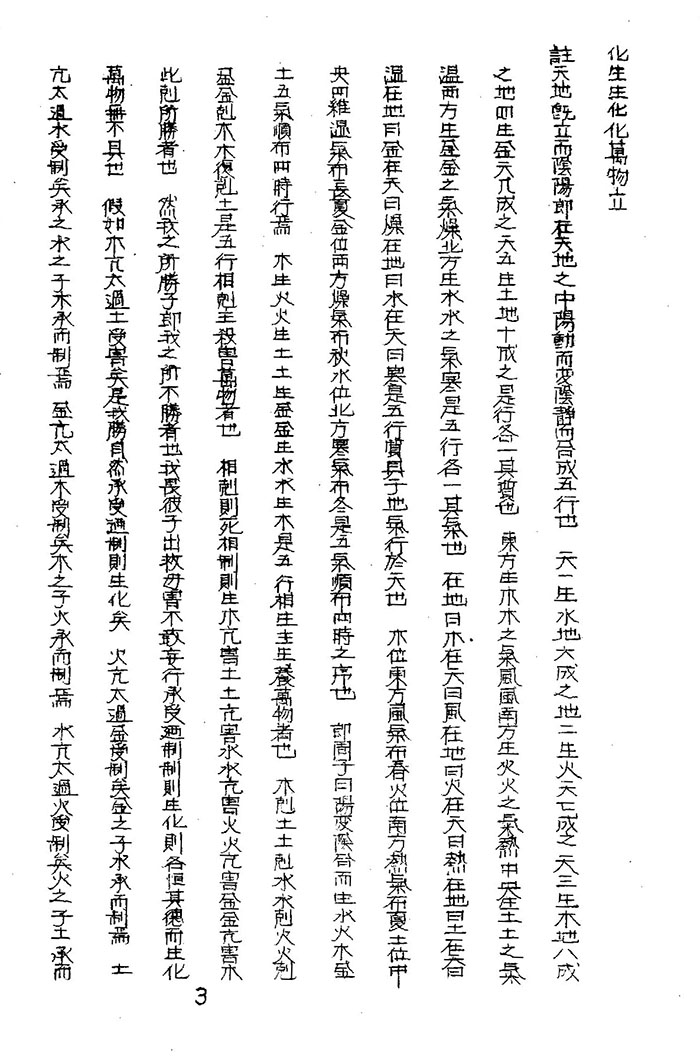 化生生化化萬物立
註天地旣立而陰陽即在天地之中陽動而变陰静而合成五行也 天一生水地六成之地二生火天七成之天三生木地八成
之地四生金天九成之天五生土地十成之是行各一其質也 東方生木木之氣風南方生火火之氣熱中央生土土之氣
温西方生金金之氣燥北方生水水之氣寒是五行各一其氣也 在地曰木在天曰風在地曰火在天曰熱在地曰土在天曰
温在地曰金在天曰燥在地曰水在天曰寒是五行質具于地氣行於天也 木位東方風氣布春火位南方熱氣布夏土位中
央四維温氣布長夏金位西方燥氣布秋水位北方寒氣布冬是五氣順布四時之序也 即周子曰陽变陰合而生水火木金
土五氣順布四時行焉 木生火火生土土生金金生水水生木是五行相生主生養萬物者也 木剋土土剋水水剋火火剋
金金剋木木復剋土是五行相剋主殺害萬物者也 相剋則死相制則生木亢害土土亢害水水亢害火火亢害金金亢害木
此剋所勝者也 然我之所勝子即我之所不勝者也我畏彼子出救母害不敢妄行承受廼制制則生化則各恒其德而生化
萬物無不具也 假如木亢太過土受害矣是我勝自然承受廼制則生化矣 火亢太過金受制矣金之子水承而制焉 土
亢太過水受制矣承之水之子木承而制焉 金亢太過木受制矣木之子火承而制焉 水亢太過火受制矣火之子土承而
3